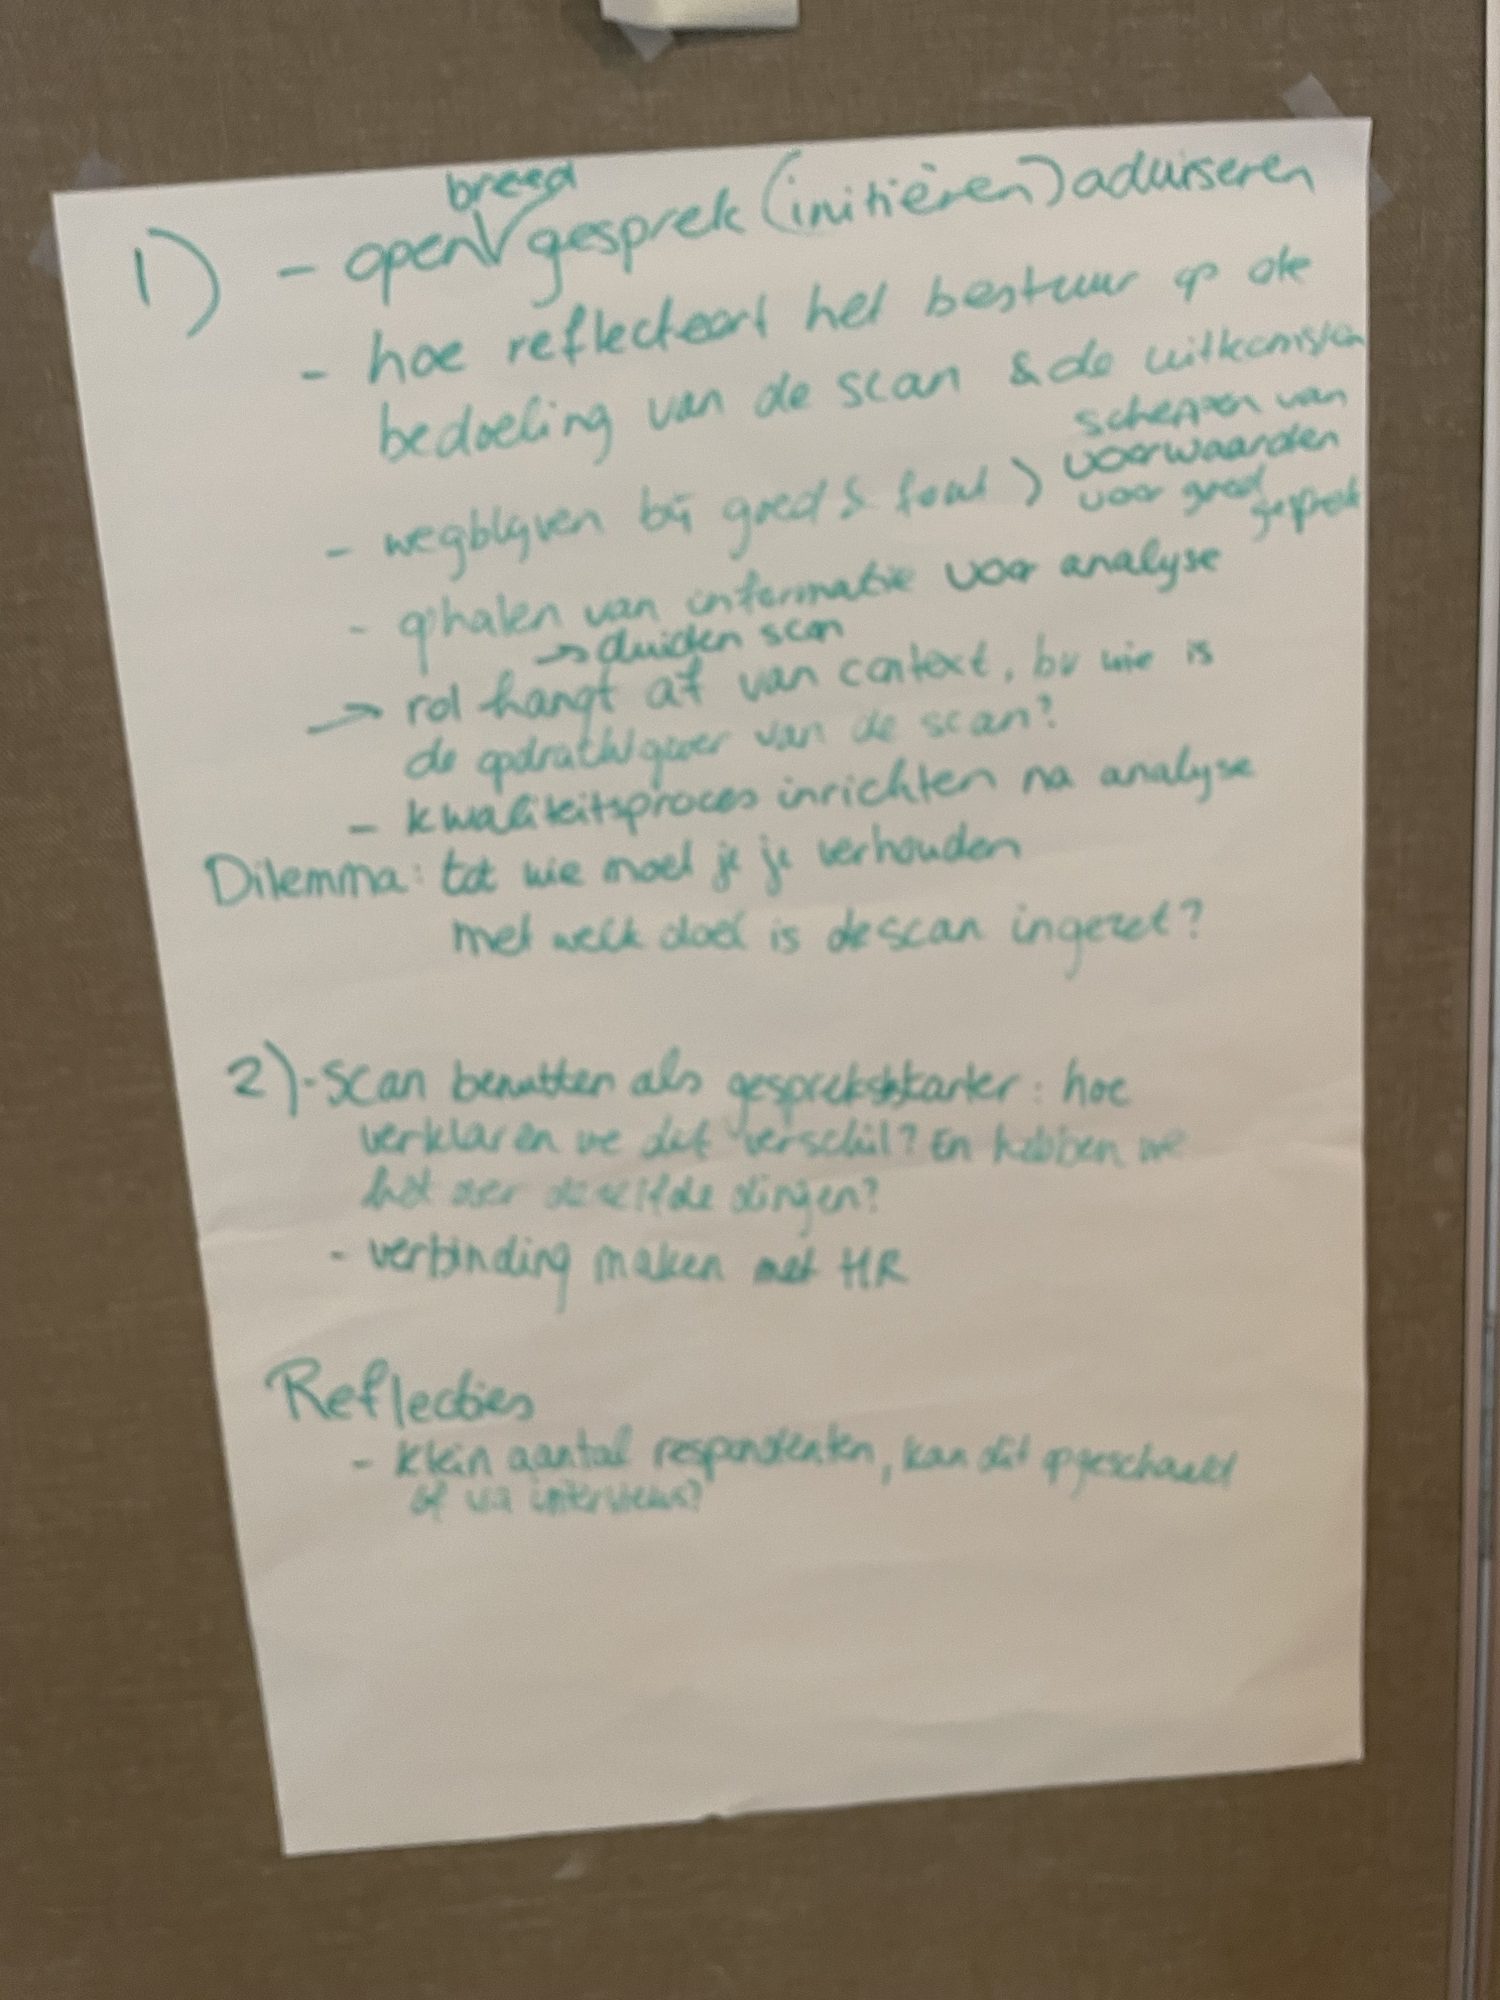 breed
1) - open gesprek (initiëren) adviseren
- hoe reflecteert het bestuur op de
bedoeling van de scan & de uitkomsten
- wegblijven bij goed & fout ) scheppen van
voorwaarden
voor goed
gesprek
- ophalen van informatie voor analyse
→ duiden scan
→ rol hangt af van context, bv wie is
de opdrachtgever van de scan?
- kwaliteitsproces inrichten na analyse
Dilemma: tot wie moet je je verhouden
met welk doel is de scan ingezet?
2) - Scan benutten als gespreksstarter: hoe
verklaren we dit verschil? En hebben we
het over dezelfde dingen?
- verbinding maken met HR
Reflecties
- klein aantal respondenten, kan dit opgeschaald
of via interviews?